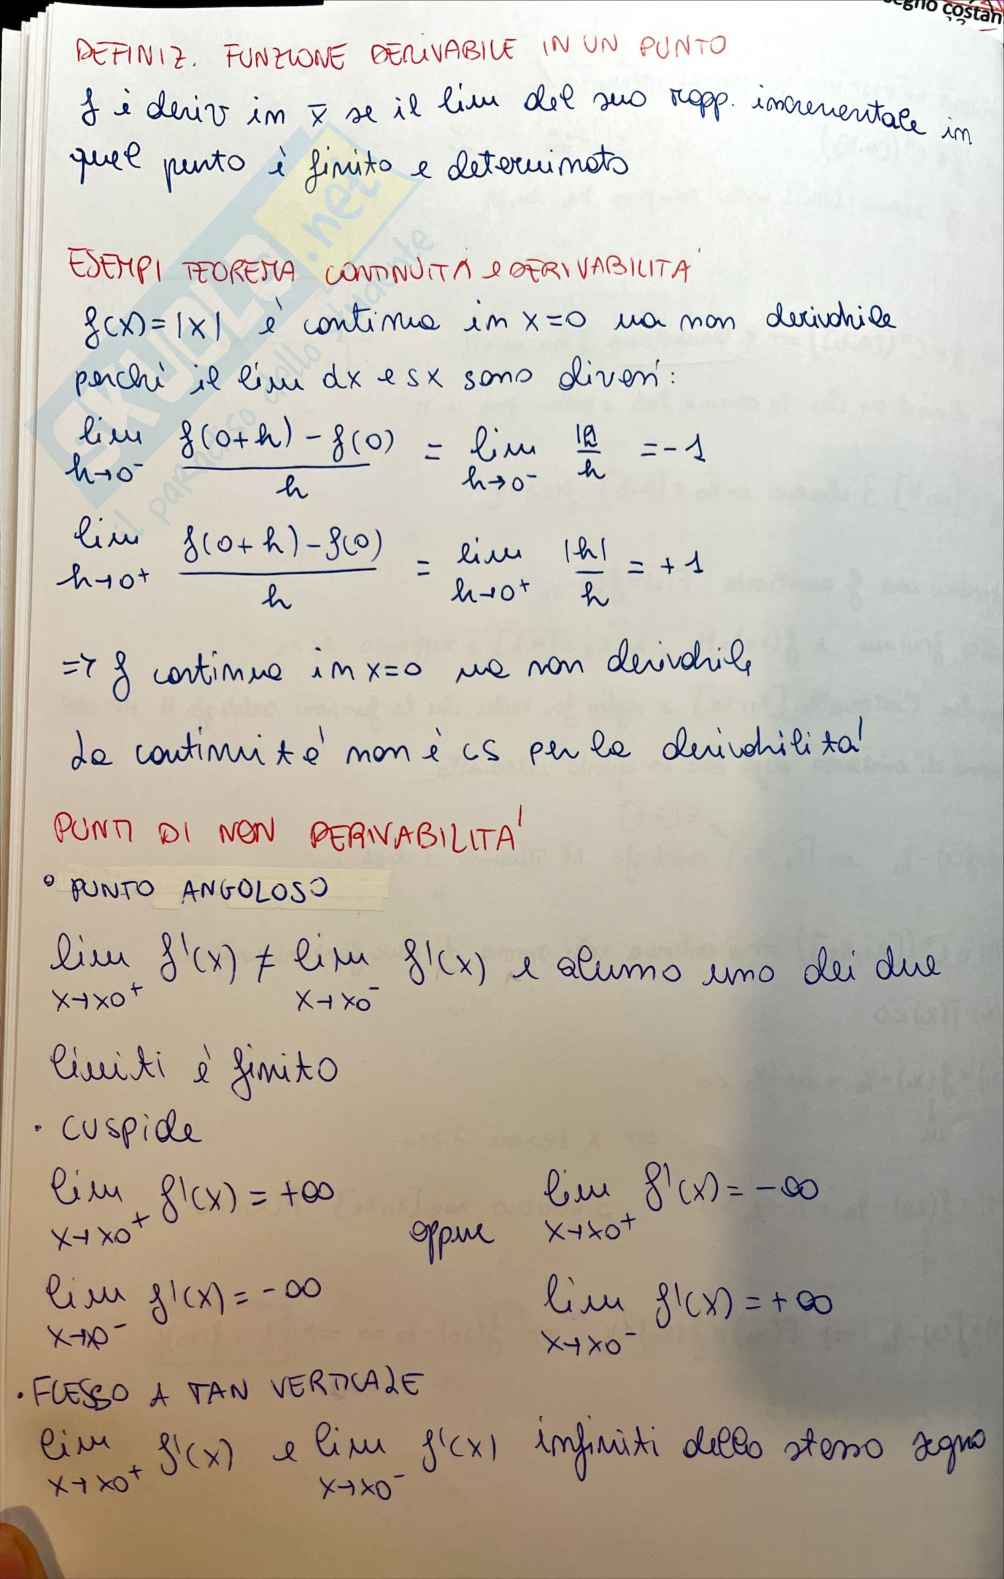 segno costan
DEFINIZ. FUNZIONE DERIVABILE IN UN PUNTO
f è deriv in x̄ se il lim del suo rapp. incrementale in
quel punto è finito e determinato
ESEMPI TEOREMA CONTINUITÀ e DERIVABILITÀ
f(x)=|x| è continua in x=0 ma non derivabile
perché il lim dx e sx sono diversi:
lim h→0⁻ (f(0+h)-f(0))/h = lim h→0⁻ |h|/h = -1
lim h→0⁺ (f(0+h)-f(0))/h = lim h→0⁺ |h|/h = +1
=> f continua in x=0 ma non derivabile
La continuità non è cs per la derivabilità
PUNTI DI NON DERIVABILITÀ
° PUNTO ANGOLOSO
lim x→x0⁺ f'(x) ≠ lim x→x0⁻ f'(x) e alumo uno dei due
limiti è finito
· CUSPIDE
lim x→x0⁺ f'(x) = +∞ oppure lim x→x0⁺ f'(x) = -∞
lim x→x0⁻ f'(x) = -∞ lim x→x0⁻ f'(x) = +∞
· FLESSO A TAN VERTICALE
lim x→x0⁺ f'(x) e lim x→x0⁻ f'(x) infiniti dello stesso segno
SKUOLA.net
il paradiso dello studente